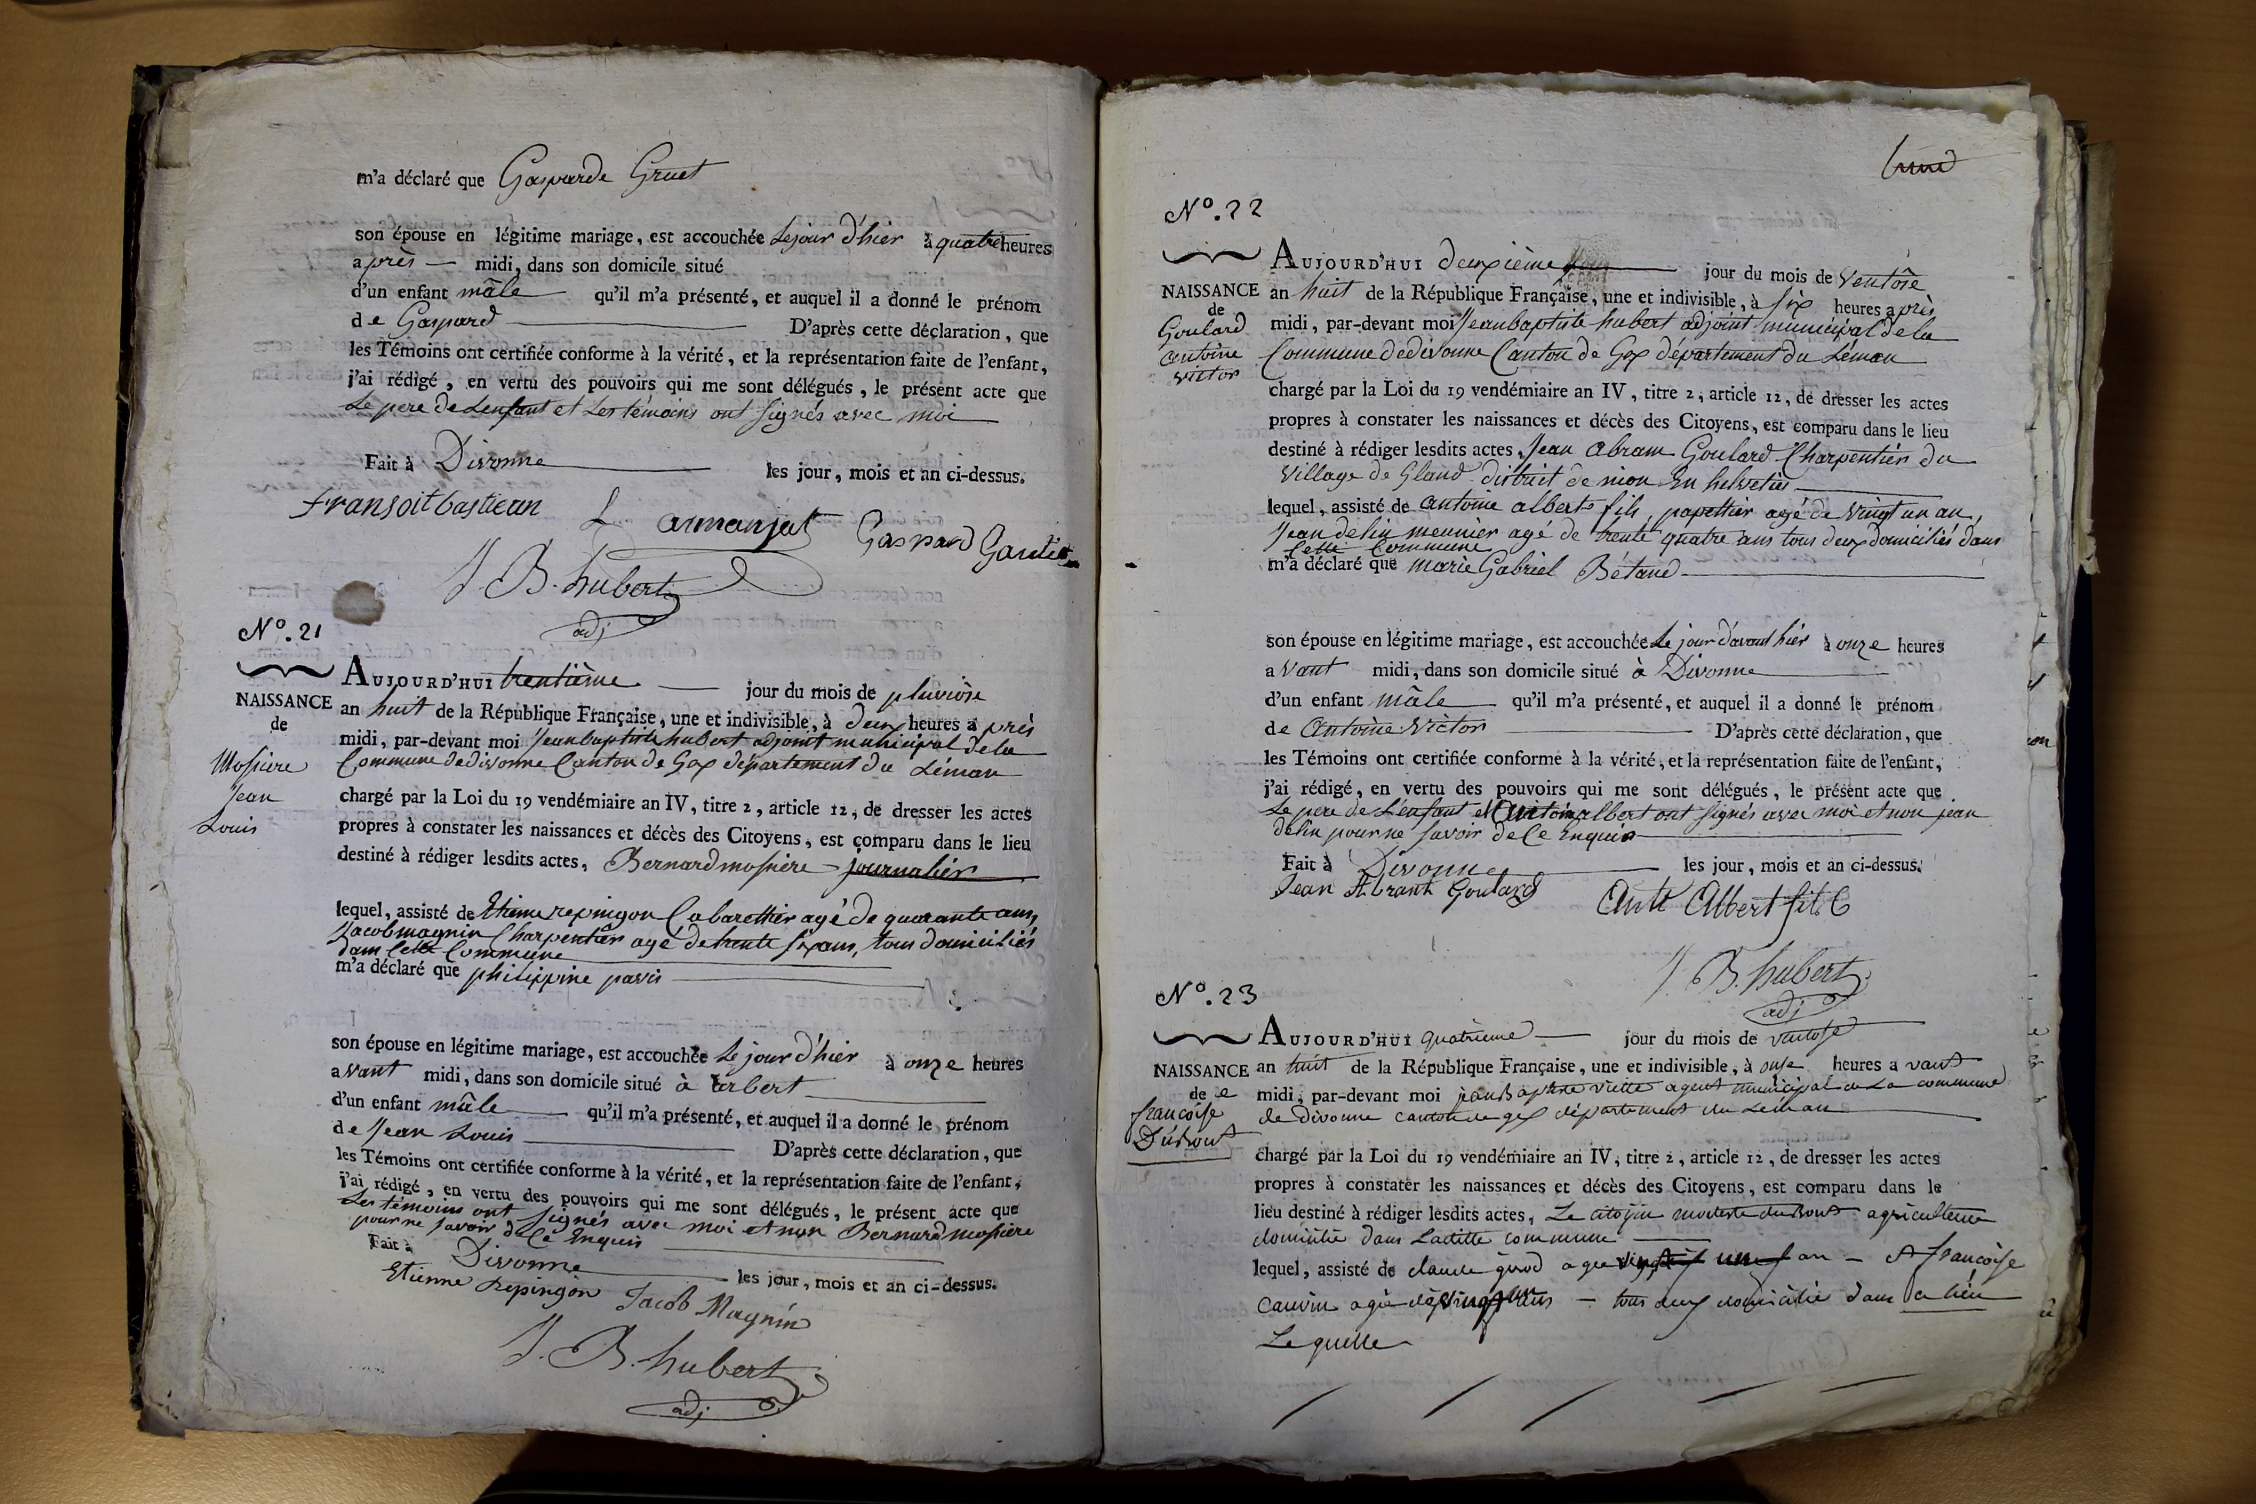 m'a déclaré que Gasparde Gruet
son épouse en légitime mariage, est accouchée Le jour d'hier à quatre heures
après midi, dans son domicile situé
d'un enfant mâle qu'il m'a présenté, et auquel il a donné le prénom
de Gaspard D'après cette déclaration, que
les Témoins ont certifiée conforme à la vérité, et la représentation faite de l'enfant,
j'ai rédigé, en vertu des pouvoirs qui me sont délégués, le présent acte que
Le pere de Lenfant et Les témoins ont signés avec moi
Fait à Divonne les jour, mois et an ci-dessus.
fransoit bastiean L armanjat Gaspard
J. B. hubert
adj
N°. 21
NAISSANCE
de
Mossiere
Jean
Louis
AUJOURD'HUI trentième jour du mois de pluviôse
an huit de la République Française, une et indivisible, à deux heures après
midi, par-devant moi Jean baptiste hubert adjoint municipal de la
Commune de divonne Canton de Gex département du Léman
chargé par la Loi du 19 vendémiaire an IV, titre 2, article 12, de dresser les actes
propres à constater les naissances et décès des Citoyens, est comparu dans le lieu
destiné à rédiger lesdits actes, Bernard mossiere journalier
lequel, assisté de Etienne repingon Cabarettier agé de quarante ans,
Jacob magnin Charpentier agé de trente six ans, tous domiciliés
dans Cette Commune
m'a déclaré que philippine paris
son épouse en légitime mariage, est accouchée Le jour d'hier à onze heures
avant midi, dans son domicile situé à arbert
d'un enfant mâle qu'il m'a présenté, et auquel il a donné le prénom
de Jean Louis D'après cette déclaration, que
les Témoins ont certifiée conforme à la vérité, et la représentation faite de l'enfant,
j'ai rédigé, en vertu des pouvoirs qui me sont délégués, le présent acte que
Les témoins ont signés avec moi et non Bernard mossiere
pour ne savoir de Ce Enquis
Fait à Divonne les jour, mois et an ci-dessus.
Etienne repingon Jacob Magnin
J. B. hubert
adj
N°. 22
NAISSANCE
de
Goulard
antoine
victor
AUJOURD'HUI deuxième jour du mois de Ventôse
an huit de la République Française, une et indivisible, à six heures après
midi, par-devant moi Jean baptiste hubert adjoint municipal de la
Commune de divonne Canton de Gex département du Léman
chargé par la Loi du 19 vendémiaire an IV, titre 2, article 12, de dresser les actes
propres à constater les naissances et décès des Citoyens, est comparu dans le lieu
destiné à rédiger lesdits actes, Jean abram Goulard Charpentier du
Village de Gland district de nion En helvetie
lequel, assisté de antoine albert fils, papettier agé de vingt un an,
Jean delin meunier agé de trente quatre ans tous deux domiciliés dans
Cette Commune
m'a déclaré que marie Gabriel Bétand
son épouse en légitime mariage, est accouchée Le jour d'avant hier à onze heures
avant midi, dans son domicile situé à Divonne
d'un enfant mâle qu'il m'a présenté, et auquel il a donné le prénom
de antoine victor D'après cette déclaration, que
les Témoins ont certifiée conforme à la vérité, et la représentation faite de l'enfant,
j'ai rédigé, en vertu des pouvoirs qui me sont délégués, le présent acte que
Le pere de L'enfant et antoin albert ont signés avec moi et non jean
delin pour ne savoir de Ce Enquis
Fait à Divonne les jour, mois et an ci-dessus.
Jean Abrant Goulard Ante Albert fils
J. B. hubert
adj
N°. 23
NAISSANCE
de
françoise
Dubout
AUJOURD'HUI quatrieme jour du mois de vantose
an huit de la République Française, une et indivisible, à onse heures avant
midi, par-devant moi jean Baptiste viette agent municipal de La commune
de Divonne canton de gex département du Leman
chargé par la Loi du 19 vendémiaire an IV, titre 2, article 12, de dresser les actes
propres à constater les naissances et décès des Citoyens, est comparu dans le
lieu destiné à rédiger lesdits actes, Le citoyen modeste dubout agriculteur
domicilié dans Laditte commune
lequel, assisté de claude girod agé an et françoise
cauvin agé de vingt un ans tous deux domicilié dans ce lieu
Lequelle